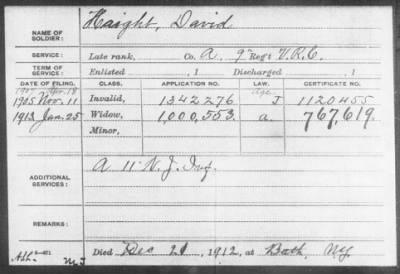 NAME OF SOLDIER: Haight, David
SERVICE: Late rank, Co. A. 9" Reg't V.R.C.
TERM OF SERVICE: Enlisted , 1 Discharged , 1
DATE OF FILING. CLASS. APPLICATION NO. LAW. CERTIFICATE NO.
1907 Apr. 18 Age
1905 Nov. 11 Invalid, 1342276 J 1120455
1913 Jan. 25 Widow, 1,000,553. a. 767,619.
Minor,
ADDITIONAL SERVICES: A 11" N.J. Inf.
REMARKS:
Died Dec 21, 1912, at Bath, NY